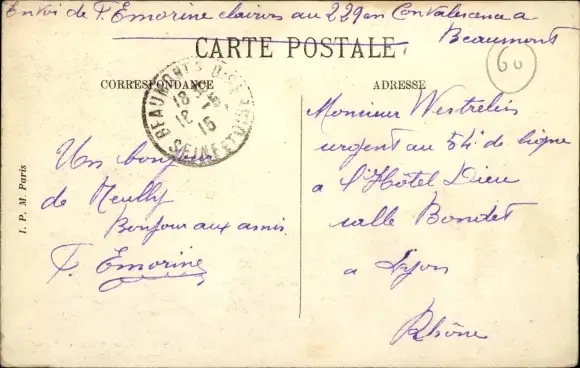 Envoi de F. Emorine clairon au 229 en Convalescence a
Beaumont
CARTE POSTALE
60
CORRESPONDANCE
ADRESSE
BEAUMONT S. OISE
SEINE ET OISE
18
12
15
Un bonjour
de Neuilly
Bonjour aux amis
F. Emorine
Monsieur Westrelin
urgent au 54e de ligne
a l'Hôtel Dieu
salle Bondet
a Lyon
Rhône
I. P. M. Paris